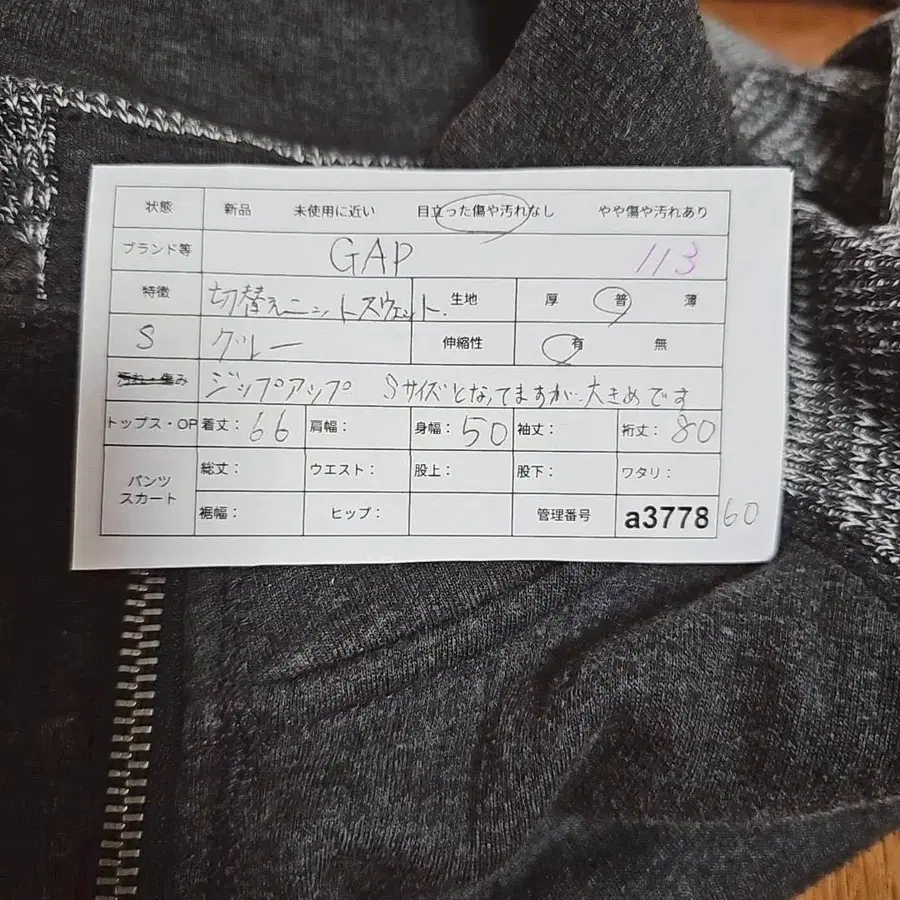 状態 新品 未使用に近い 目立った傷や汚れなし やや傷や汚れあり
ブランド等 GAP 113
特徴 切替えニットスウェット. 生地 厚 普 薄
S グレー 伸縮性 有 無
汚れ・傷み ジップアップ Sサイズとなってますが、大きめです
トップス・OP 着丈: 66 肩幅: 身幅: 50 袖丈: 裄丈: 80
パンツ スカート 総丈: ウエスト: 股上: 股下: ワタリ:
裾幅: ヒップ: 管理番号 a3778 60